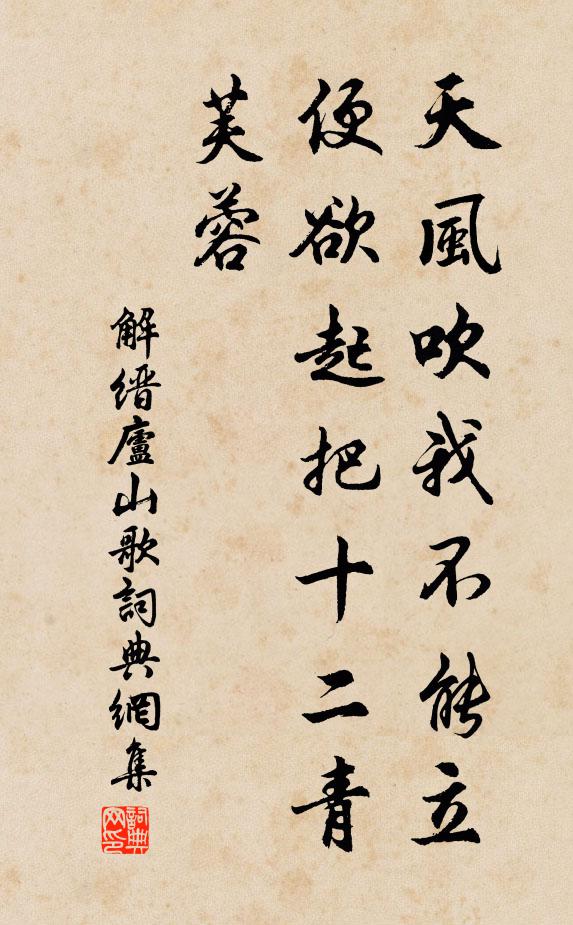 天風吹我不能立
便欲起把十二青
芙蓉
解縉廬山歌詞典網集
詞典
网印